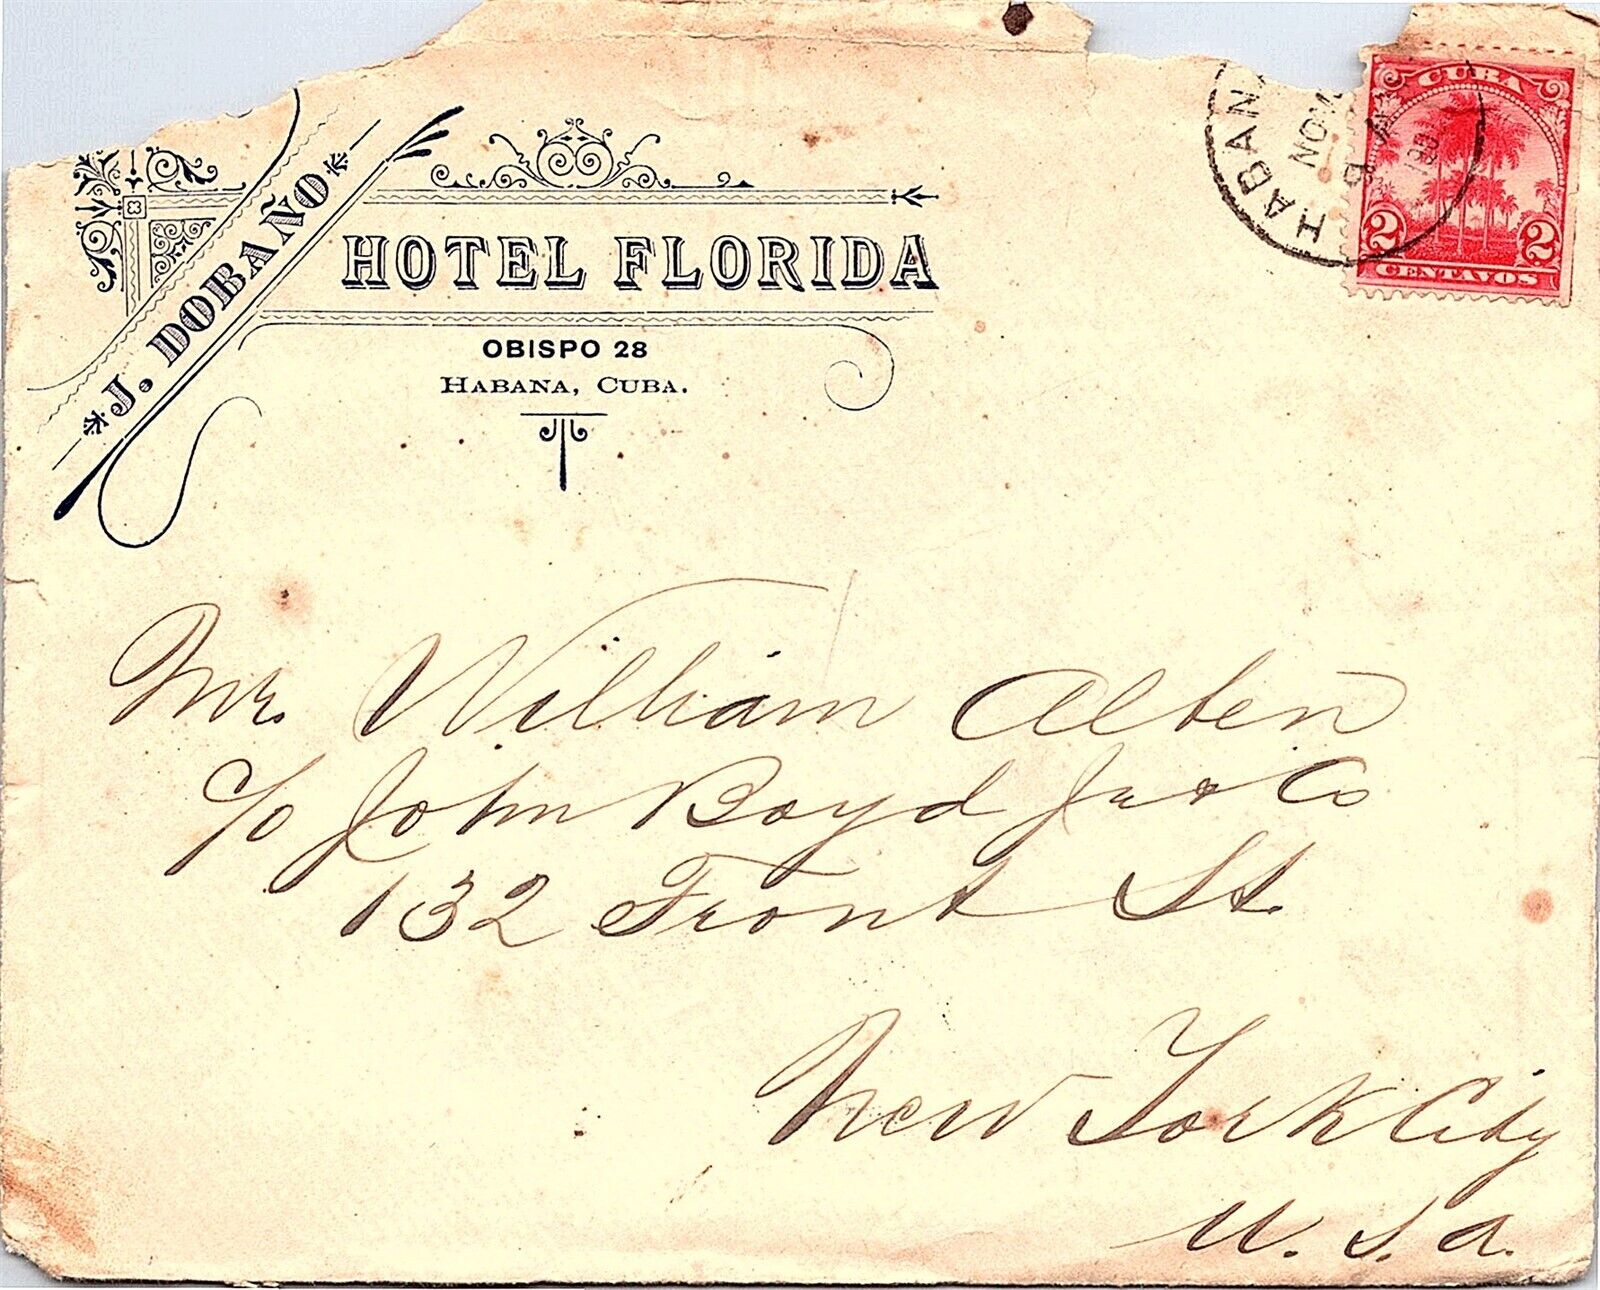 J. DOBAÑO
HOTEL FLORIDA
OBISPO 28
HABANA, CUBA.
HABANA
CUBA
2 2
CENTAVOS
Mr. William Alten
c/o John Boyd Jr & Co
132 Front St.
New York City
U.S.A.